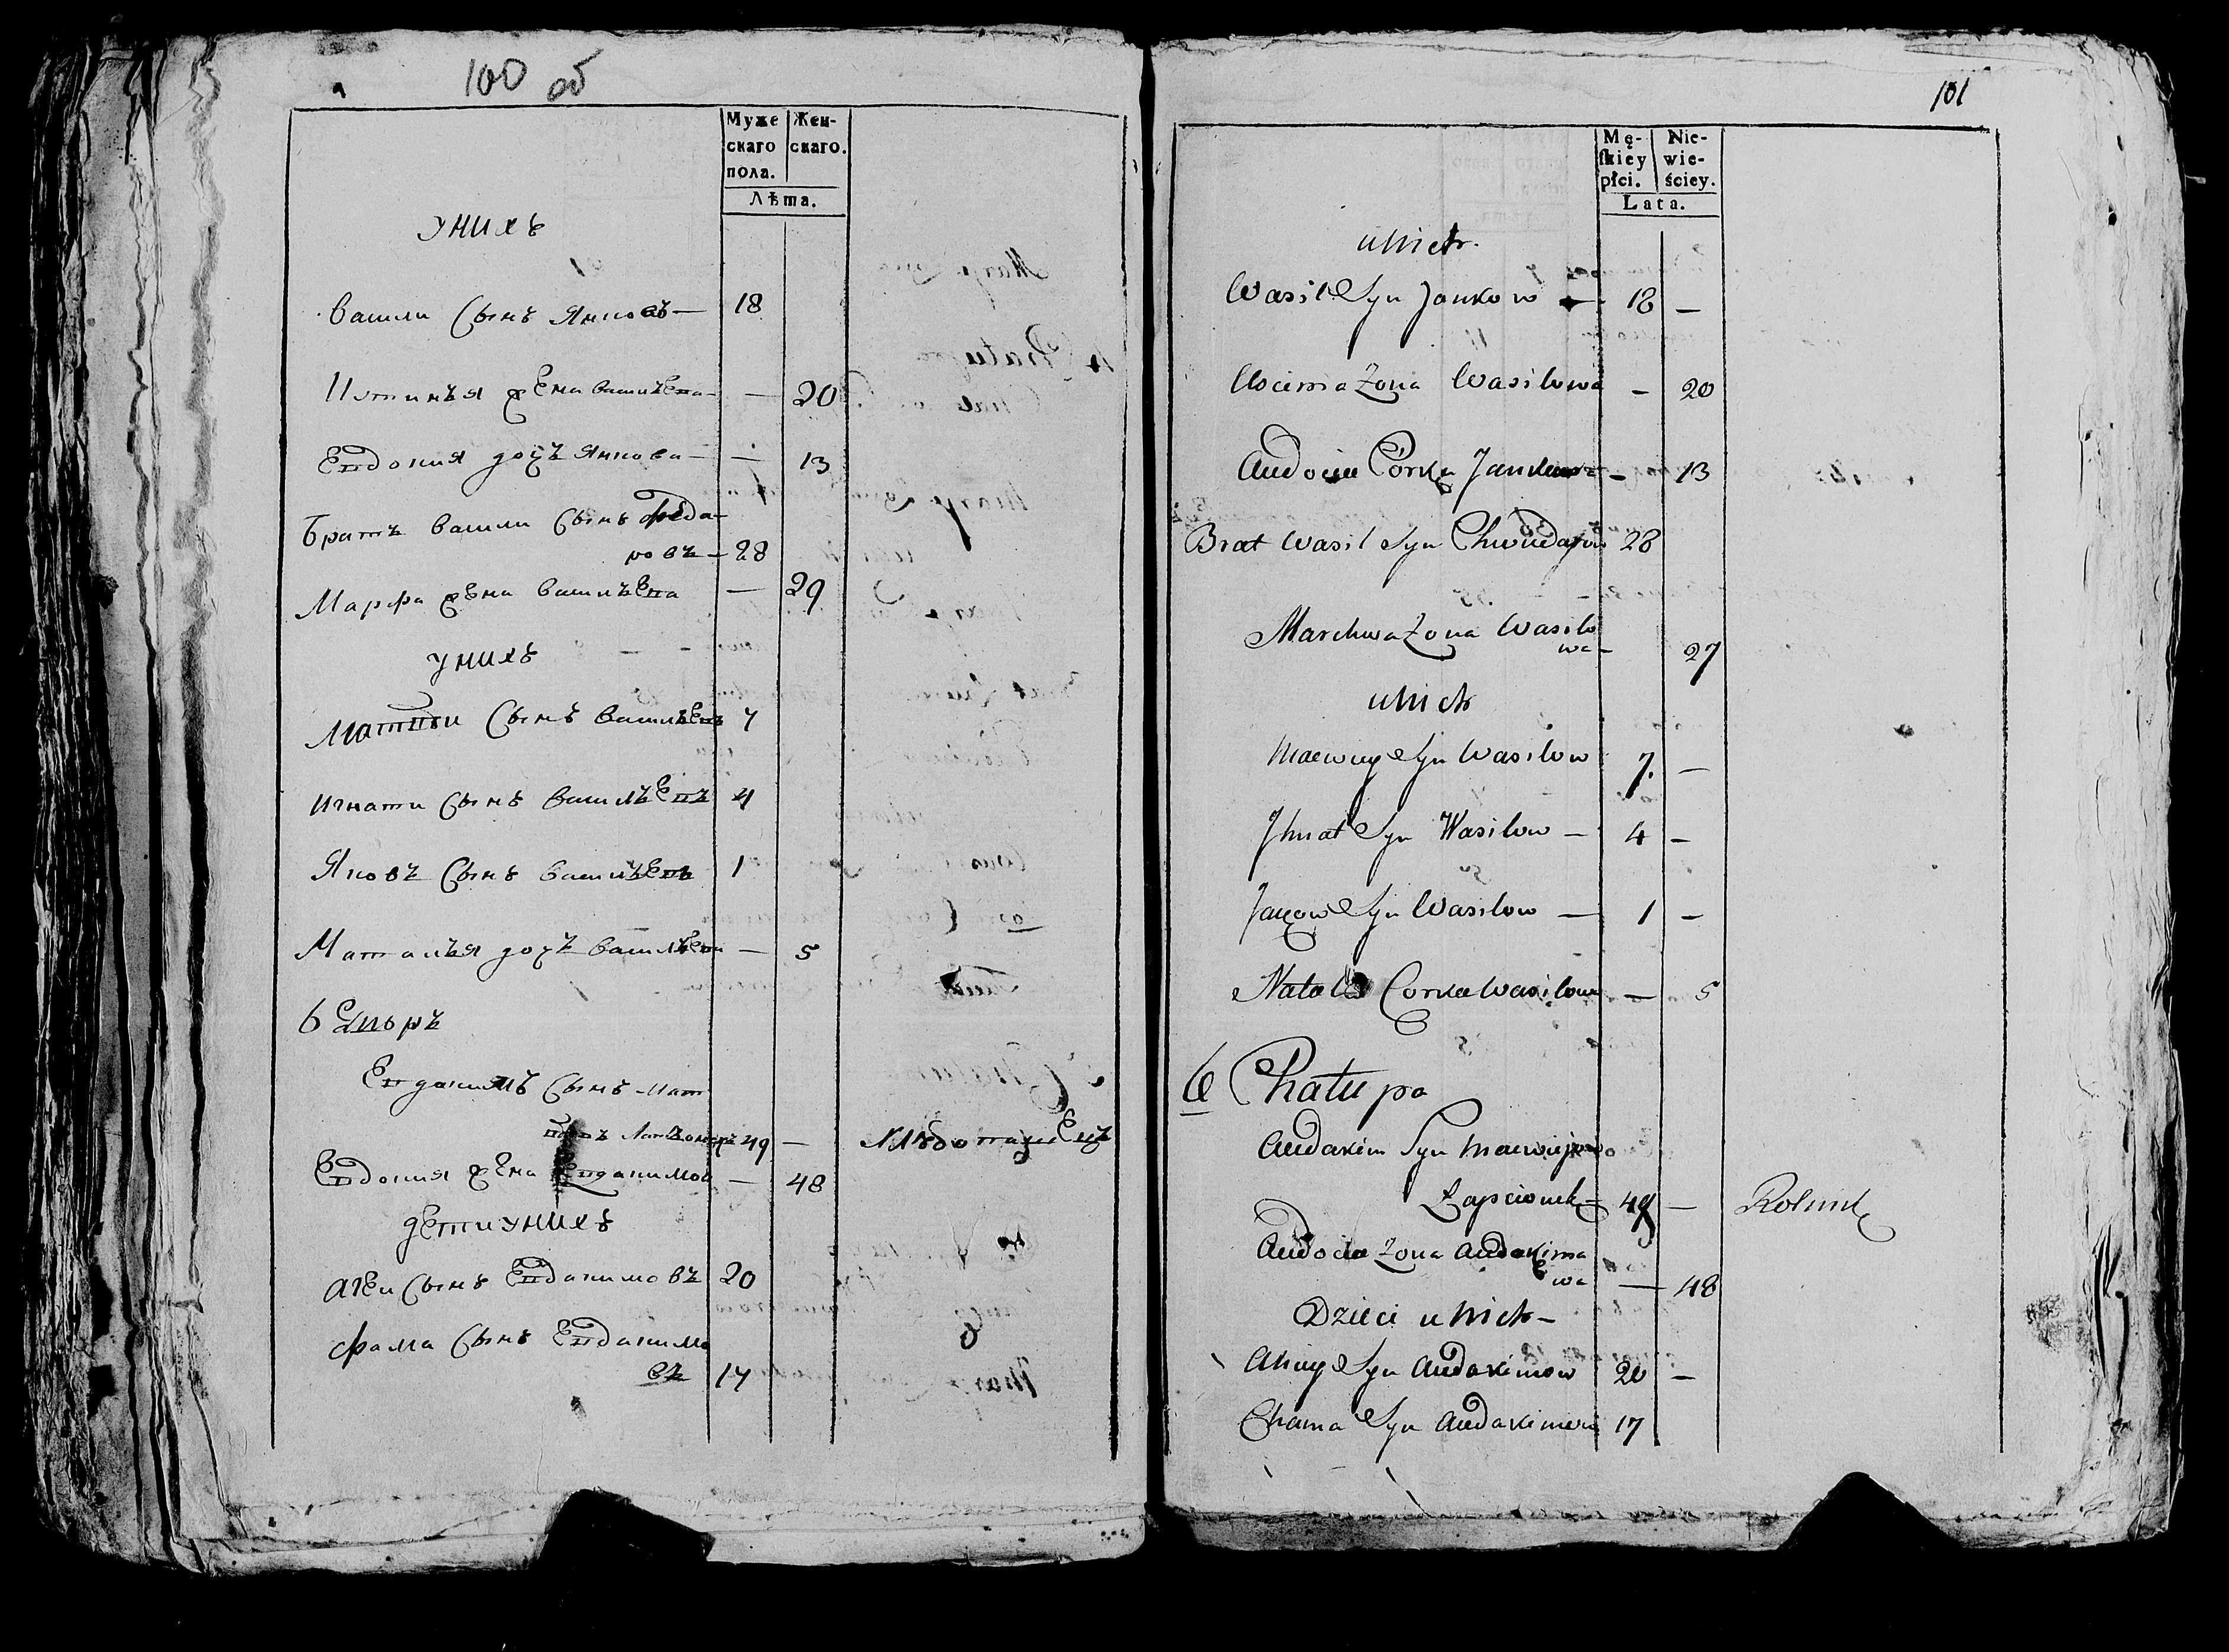 100 об
Муже Жен-
скаго скаго.
пола.
Лѣта.
унихъ
Васили Сынъ Янковъ — 18
Устинъя жена васильева — 20
Евдокия дочъ Янкова — — 13
Братъ васили Сынъ Феда-
ровъ — 28
Марфа жена васильева — 29
унихъ
Матвѣи Сынъ васильевъ 7
игнати Сынъ васильевъ 4
Яковъ Сынъ васильевъ 1
Наталъя дочъ васильева — 5
6 Двора
Евдакимъ Сынъ Мат
49 — хлѣбопашецъ
Евдокия жена Евдакимова — 48
дети унихъ
агеи Сынъ Евдакимовъ 20
Фама Сынъ Евдакимо
въ 17
101
Mę- Nie-
skiey wie-
płci. ściey.
Lata.
u Nich
Wasil Syn Jankow — 18 —
Uscima Zona Wasilowa — 20
Audocia Córka Jankowa — 13
Brat Wasil Syn Chwiedarow 28
Marchwa Zona Wasilo
wa — 27
u Nich
Maciey Syn Wasilow 7. —
Jhnat Syn Wasilow — 4 —
Jakow Syn Wasilow — 1 —
Natala Corka Wasilowa — 5
6 Chałupa
Audakim Syn Maciejewo
Łapcionek — 49 — Rolnik
Audocia Zona Audakimo
wa — 48
Dzieci u Nich —
Ahiey Syn Audakimow 20 —
Chama Syn Audakimow 17